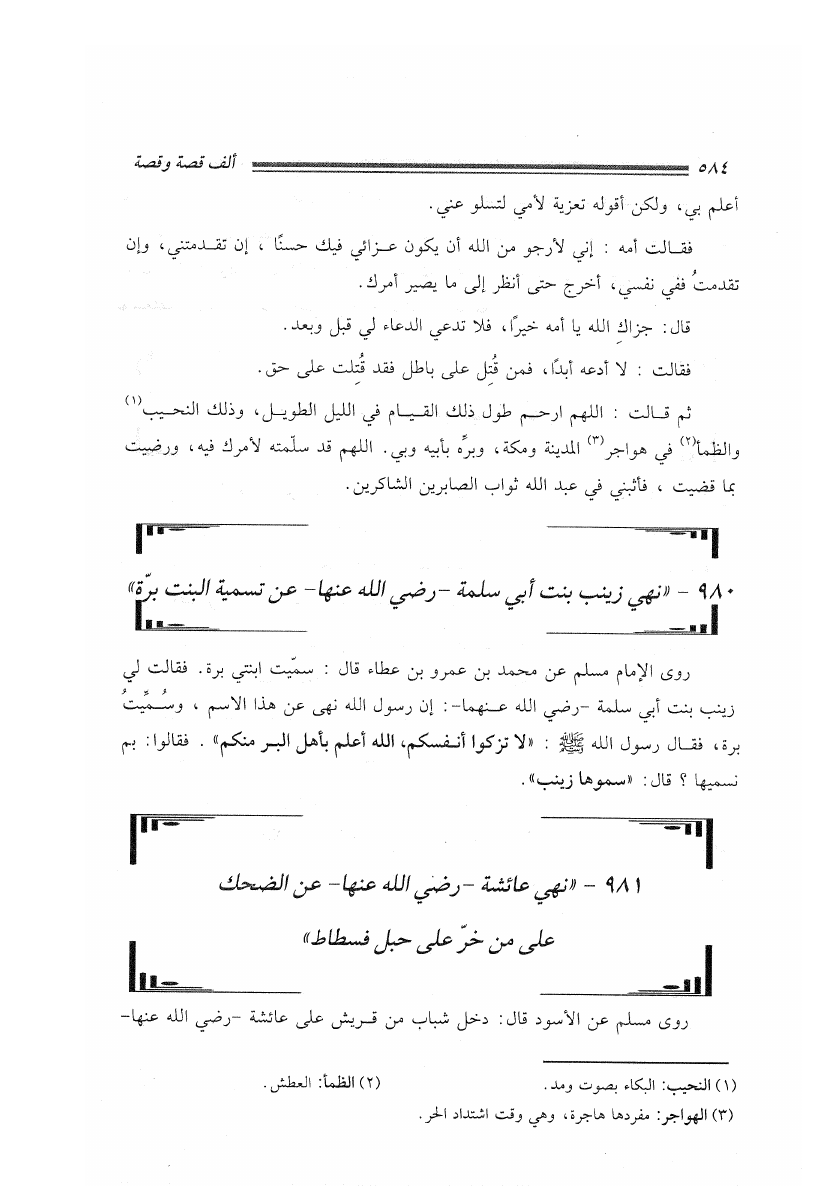 ٥٨٤ ألف قصة وقصة
أعلم بي، ولكن أقوله تعزية لأمي لتسلو عني.
فقالت أمه : إني لأرجو من الله أن يكون عزائي فيك حسنًا ، إن تقدمتني، وإن
تقدمتُ ففي نفسي، أخرج حتى أنظر إلى ما يصير أمرك.
قال: جزاكِ الله يا أمه خيرًا، فلا تدعي الدعاء لي قبل وبعد.
فقالت : لا أدعه أبدًا، فمن قُتِل على باطل فقد قُتِلت على حق.
ثم قالت : اللهم ارحم طول ذلك القيام في الليل الطويل، وذلك النحيب(١)
والظمأ(٢) في هواجر(٣) المدينة ومكة، وبرِّه بأبيه وبي. اللهم قد سلّمته لأمرك فيه، ورضيت
بما قضيت ، فأثبني في عبد الله ثواب الصابرين الشاكرين.
٩٨٠ - «نهي زينب بنت أبي سلمة -رضي الله عنها- عن تسمية البنت برّة»
روى الإمام مسلم عن محمد بن عمرو بن عطاء قال : سمّيت ابنتي برة. فقالت لي
زينب بنت أبي سلمة -رضي الله عنهما-: إن رسول الله نهى عن هذا الاسم ، وسُمِّيتُ
برة، فقال رسول الله ﷺ : «لا تزكوا أنفسكم، الله أعلم بأهل البر منكم» . فقالوا: بم
نسميها ؟ قال: «سموها زينب».
٩٨١ - «نهي عائشة -رضي الله عنها- عن الضحك
على من خرّ على حبل فسطاط»
روى مسلم عن الأسود قال: دخل شباب من قريش على عائشة -رضي الله عنها-
(١) النحيب: البكاء بصوت ومد. (٢) الظمأ: العطش.
(٣) الهواجر: مفردها هاجرة، وهي وقت اشتداد الحر.